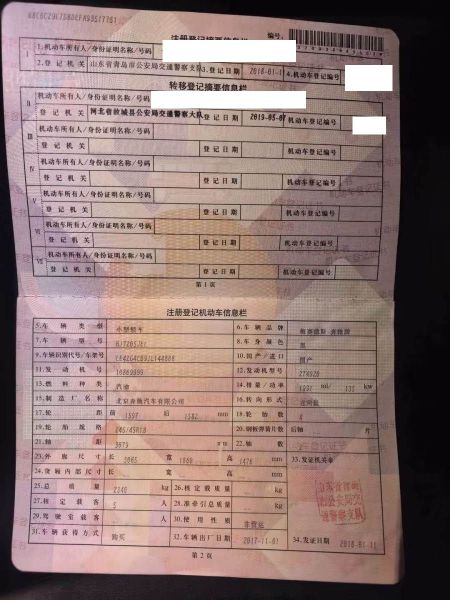 注册登记摘要信息栏
编号:
I 1.机动车所有人/身份证明名称/号码
2.登记机关 山东省青岛市公安局交通警察支队 3.登记日期 2018-01-11 4.机动车登记编号
转移登记摘要信息栏
II 机动车所有人/身份证明名称/号码
登记机关 河北省故城县公安局交通警察大队 登记日期 2019-05-07 机动车登记编号
III 机动车所有人/身份证明名称/号码
登记机关 登记日期 机动车登记编号
IV 机动车所有人/身份证明名称/号码
登记机关 登记日期 机动车登记编号
V 机动车所有人/身份证明名称/号码
登记机关 登记日期 机动车登记编号
VI 机动车所有人/身份证明名称/号码
登记机关 登记日期 机动车登记编号
VII 机动车所有人/身份证明名称/号码
登记机关 登记日期 机动车登记编号
第1页
注册登记机动车信息栏
5.车辆类型 小型轿车 6.车辆品牌
7.车辆型号 8.车身颜色 黑
9.车辆识别代号/车架号 10.国产/进口 国产
11.发动机号 12.发动机型号 274920
13.燃料种类 汽油 14.排量/功率 1991 ml/ 135 kw
15.制造厂名称 北京奔驰汽车有限公司 16.转向形式
17.轮距 前 1597 后 1582 mm 18.轮胎数 4
19.轮胎规格 245/45R18 20.钢板弹簧片数 后轴 片
21.轴距 3079 mm 22.轴数 2
23.外廓尺寸 长 5065 宽 1860 高 mm 33.发证机关章
24.货厢内部尺寸 长 宽 高 mm
25.总质量 kg 26.核定载质量 kg
27.核定载客 5 人 28.准牵引总质量 kg
29.驾驶室载客 人 30.使用性质 非营运
31.车辆获得方式 购买 32.车辆出厂日期 2017-11-01 34.发证日期 2018-01-11
第2页